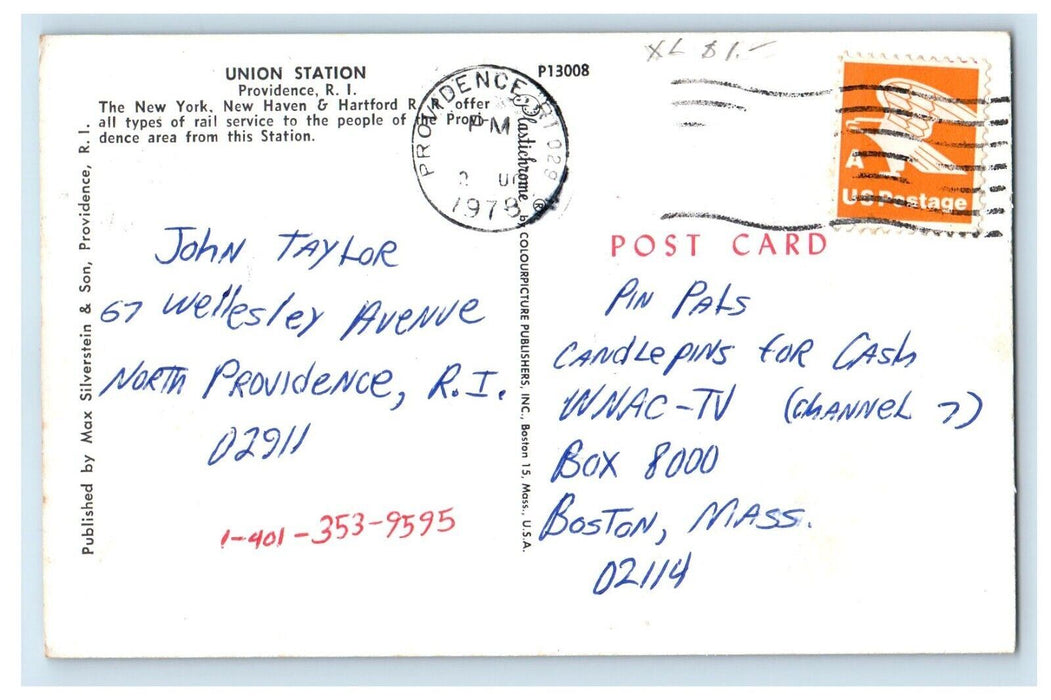 XL $1.-
UNION STATION
Providence, R. I.
The New York, New Haven & Hartford R. R. offer
all types of rail service to the people of the Provi-
dence area from this Station.
P13008
PROVIDENCE, RI 029
PM
2
1978
A
US Postage
POST CARD
Published by Max Silverstein & Son, Providence, R. I.
Plastichrome ® by COLOURPICTURE PUBLISHERS, INC., Boston 15, Mass., U.S.A.
John Taylor
67 Wellesley Avenue
North Providence, R.I.
02911
1-401-353-9595
Pin Pals
Candlepins for Cash
WNAC-TV (Channel 7)
Box 8000
Boston, Mass.
02114